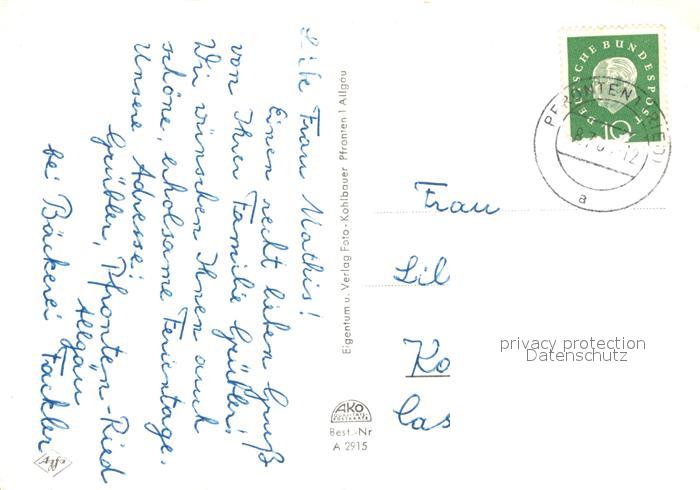 Lile Frau Mathis!
Einen recht lieben Gruß
von Ihrer Familie Grübler!
Wir wünschen Ihnen auch
schöne, erholsame Ferientage.
Unsere Adresse:
Grübler, Pfronten-Ried
Allgäu
bei Bäckerei Fackler
Eigentum u. Verlag Foto-Kohlbauer Pfronten 1 Allgäu
DEUTSCHE BUNDESPOST
10
PFRONTEN (RIED)
a
Frau
Lil
Ko
las
privacy protection
Datenschutz
AKO
Best.-Nr
A 2915